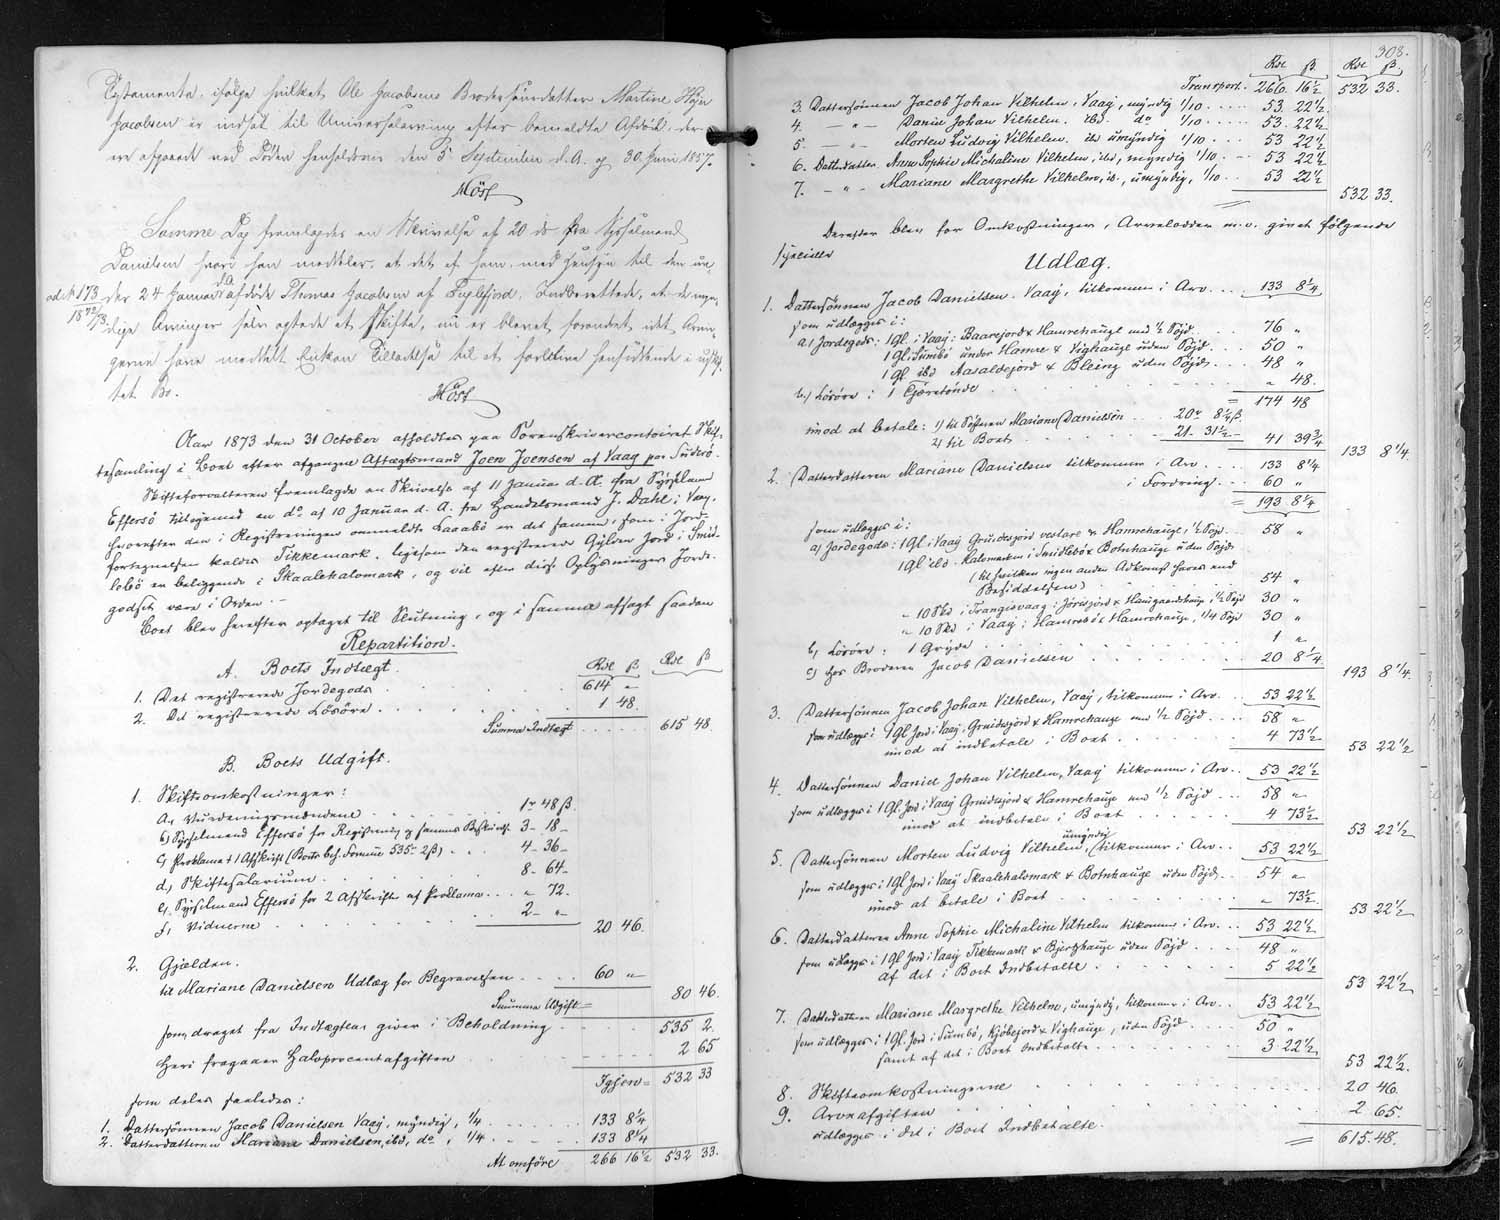 Testamente, ifølge hvilket Ole Jacobsens Brodersønsdatter Martine Høyn
Jacobsen er indsat til Universalarving efter bemeldte Afdøde, der
ere afgaaede ved Døden henholdsvis den 5 September d. A. og 30 Juni 1857.
Möst
Samme Dag fremlagdes en Skrivelse af 20 ds fra Sysselmand
Danielsen hvori han meddeler, at det af ham, med Hensyn til den un-
der 24 Januar d.A. afdøde Thomas Jacobsen af Fuglefjord, Indberettede, at de myn-
dige Arvinger selv agtede at skifte, nu er blevet forandret idet Arvin-
gerne have meddelt Enken Tilladelse til at forblive hensiddende i uskif-
tet Bo.
ad № 173
1872/73.
Möst
Aar 1873 den 31 October afholdtes paa Sorenskrivercontoiret Skif-
tesamling i Boet efter afgangne Aftægtsmand Joen Joensen af Vaag paa Suderö.
Skifteforvalteren fremlagde en Skrivelse af 11 Januar d. A. fra Sysselmand
Effersö tilligemed en do af 10 Januar d. A. fra Handelsmand J. Dahl i Vaag,
hvorefter den i Registreringen ommeldte Laxabö er det samme, som i Jord-
fortegnelsen kaldes Tikkemark, ligesom den registrerede Gylden Jord i Smid-
lebö er beliggende i Skaalehalomark, og vil efter disse Oplysninger Jorde-
godset være i Orden.—
Boet blev herefter optaget til Slutning, og i samme afsagt saadan
Repartition.
A. Boets Indtægt. Rdl ß Rdl ß
1. Det registrerede Jordegods . . . . 614 "
2. Det registrerede Lösöre . . . . 1 48.
Summa Indtægt . . . . . 615 48.
B. Boets Udgift.
1. Skifteomkostninger:
a, Vurderingsmændene . . . . . 1r 48 ß.
b, Sysselmand Effersö for Registrering og sammes Beskrivelse 3- 18-
c, Proklama + 1 Afskrift (Boets beh. Formue 535r 2ß) . . . 4- 36-
d, Skiftesalarium . . . . . 8- 64-
e, Sysselmand Effersö for 2 Afskrifter af Proklama . . . " 72.
f, Vidnerne . . . . . 2- "-
20 46.
2. Gjælden.
til Mariane Danielsen Udlæg for Begravelsen . . . . 60 "
Summa Udgift = 80 46.
som, draget fra Indtægten, giver i Beholdning . . . 535 2.
Heri fragaaer Halvprocentafgiften . . . . . 2 65
Igjen = 532 33
som deles saaledes:
1. Dattersönnen Jacob Danielsen Vaag, myndig, 1/4 . . . . . 133 8 1/4
2. Datterdatteren Mariane Danielsen, ibd, do, 1/4 . . . . 133 8 1/4
At overföre 266 16 1/2 532 33.
303.
Rdl ß Rdl ß
Transport. 266. 16 1/2 532 33.
3. Dattersönnen Jacob Johan Vilhelm, Vaag, myndig 1/10 . . . . 53 22 1/2
4. — " — Daniel Johan Vilhelm. ibd. do 1/10 . . . . . 53. 22 1/2
5. — " — Morten Ludvig Vilhelm. ib umyndig 1/10 . . . 53 22 1/2
6. Datterdatter. Anne Sophie Michaline Vilhelm, ibd, myndig 1/10 . . 53 22 1/2
7. — " — Mariane Margrethe Vilhelm, ib., umyndig, 1/10 . . 53 22 1/2
532 33.
Derefter blev for Omkostninger, Arvelodder m.v. givet fölgende
specielle
Udlæg.
1. Dattersönnen Jacob Danielsen. Vaag, tilkommer i Arv . . . 133 8 1/4
som udlægges i:
a, Jordegods: 1 Gl. i Vaag: Baarejord & Hamrehauge med 1/2 Söjd . . . 76 "
1 Gl. i Sumbö under Hamre & Vighauge uden Söjd . . . 50 "
1 Gl ibd Aasaldejord & Bleing uden Söjd . . . 48 "
b, Lösöre: 1 Tjæretönde . . . . . " 48.
= 174 48
imod at betale: 1) til Söstern Mariane Danielsen . . . 20r 8 1/4 ß
2) til Boet . . . . . 21- 31 1/2- 41 39 3/4
133 8 1/4.
2. Datterdatteren Mariane Danielsen tilkommer i Arv . . . 133 8 1/4
i Fordring . . . 60 "
= 193 8 1/4
som udlægges i:
a, Jordegods: 1 Gl. i Vaag Gruidesjord vestare & Hamrehauge, 1/2 Söjd . . 58 "
1 Gl ibd. Halomarken i Smidlebö & Botnhauge uden Söjd
(til hvilken ingen anden Adkomst haves end
Besiddelsen) . . . . . 54 "
" 10 Skd i Trangisvaag: Jörisjord & Haugaardshauge 1/2 Söjd 30 "
" 10 Skd i Vaag: Hamrebö & Hamrehauge, 1/4 Söjd 30 "
b, Lösöre: 1 Gryde . . . . . 1 "
c, hos Broderen Jacob Danielsen . . . . . 20 8 1/4
193 8 1/4.
3. Dattersönnen Jacob Johan Vilhelm, Vaag, tilkommer i Arv . . 53 22 1/2
som udlægges i 1 Gl Jord i Vaag, Gruidesjord & Hamrehauge med 1/2 Söjd . . . 58 "
imod at indbetale i Boet . . . . . 4 73 1/2
53 22 1/2
4. Dattersönnen Daniel Johan Vilhelm, Vaag tilkommer i Arv . . 53 22 1/2
som udlægges i 1 Gl. Jord i Vaag Gruidesjord & Hamrehauge med 1/2 Söjd . . . 58 "
imod at indbetale i Boet . . . . . 4 73 1/2
53 22 1/2
5. Dattersönnen Morten Ludvig Vilhelm, umyndig, tilkommer i Arv . . 53 22 1/2
som udlægges i 1 Gl Jord i Vaag Skaalehalomark & Botnhauge uden Söjd . . 54 "
imod at betale i Boet . . . . . " 73 1/2.
53 22 1/2
6. Datterdatteren Anne Sophie Michaline Vilhelm tilkommer i Arv . . . 53 22 1/2
som udlægges i 1 Gl Jord i Vaag Tikkemark & Bjerghauge uden Söjd . . . 48 "
af det i Boet Indbetalte . . . . . 5 22 1/2
53 22 1/2
7. Datterdatteren Mariane Margrethe Vilhelm, umyndig, tilkommer i Arv . . 53 22 1/2
som udlægges i 1 Gl. Jord i Sumbö, Kjöbejord & Vighauge, uden Söjd . . . 50 "
samt af det i Boet Indbetalte . . . . . 3 22 1/2
53 22 1/2.
8. Skifteomkostningerne . . . . . 20 46.
9. Arveafgiften . . . . . 2 65.
udlægges i det i Boet Indbetalte.
= 615. 48.